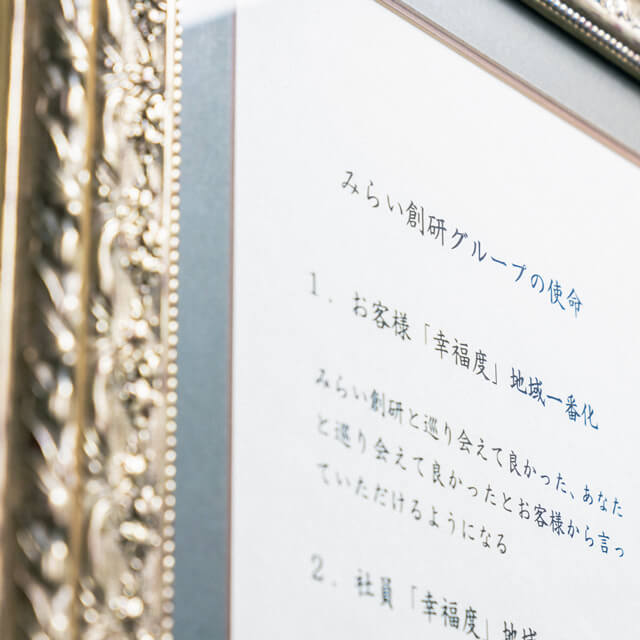 みらい創研グループの使命
1. お客様「幸福度」地域一番化
みらい創研と巡り会えて良かった、あなた
と巡り会えて良かったとお客様から言っ
ていただけるようになる
2. 社員「幸福度」地域